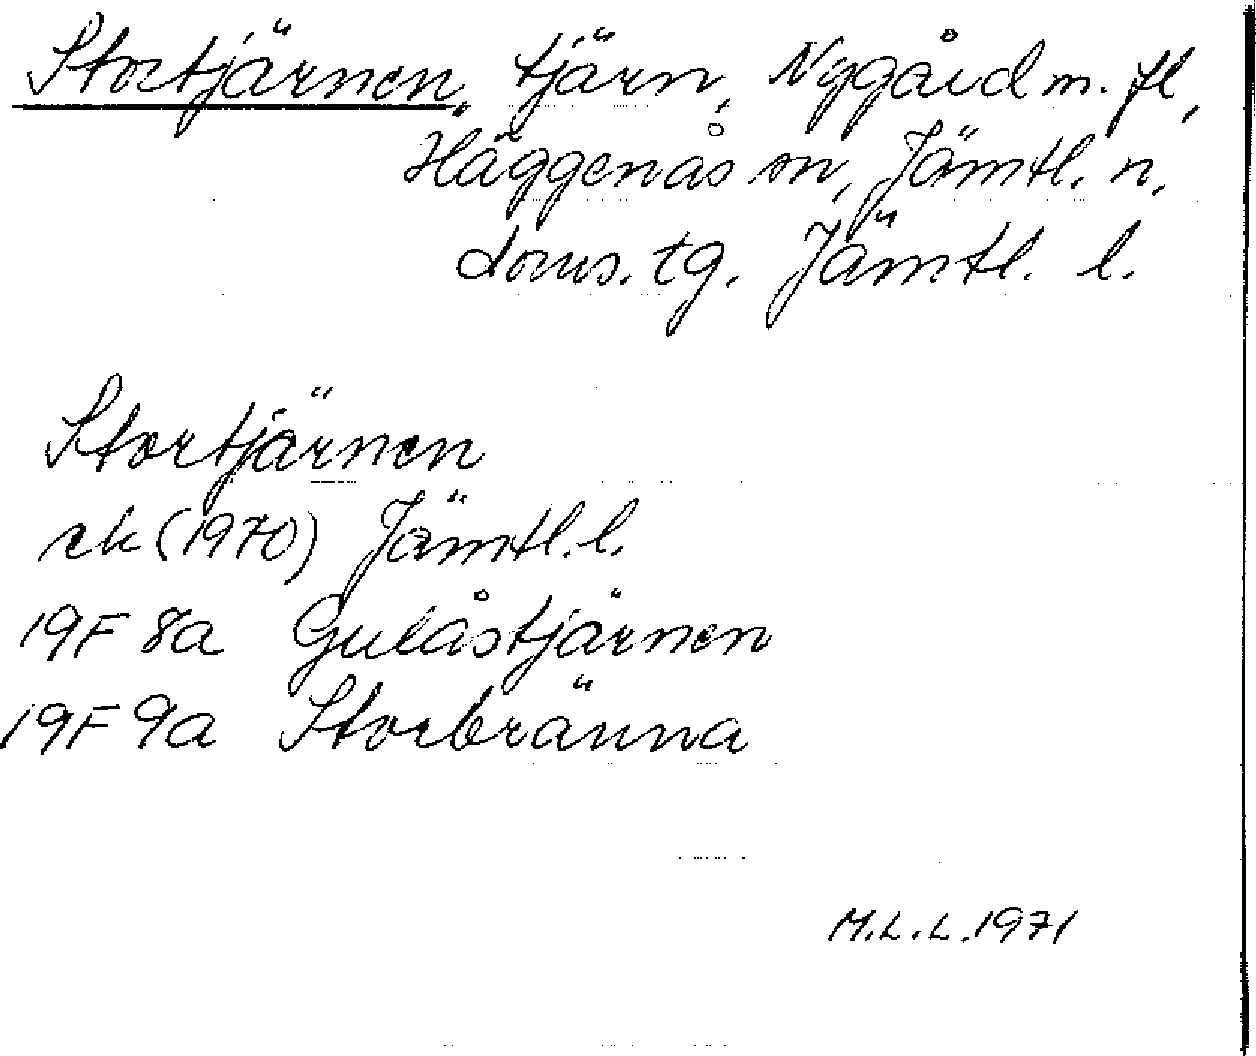 Stortjärnen, tjärn, Nygård m. fl,
Häggenås sn, Jämtl. n.
doms. tg. Jämtl. l.
Stortjärnen
ek (1970) Jämtl. l.
19F 8a Gulåstjärnen
19F 9a Storbränna
M.L.L. 1971